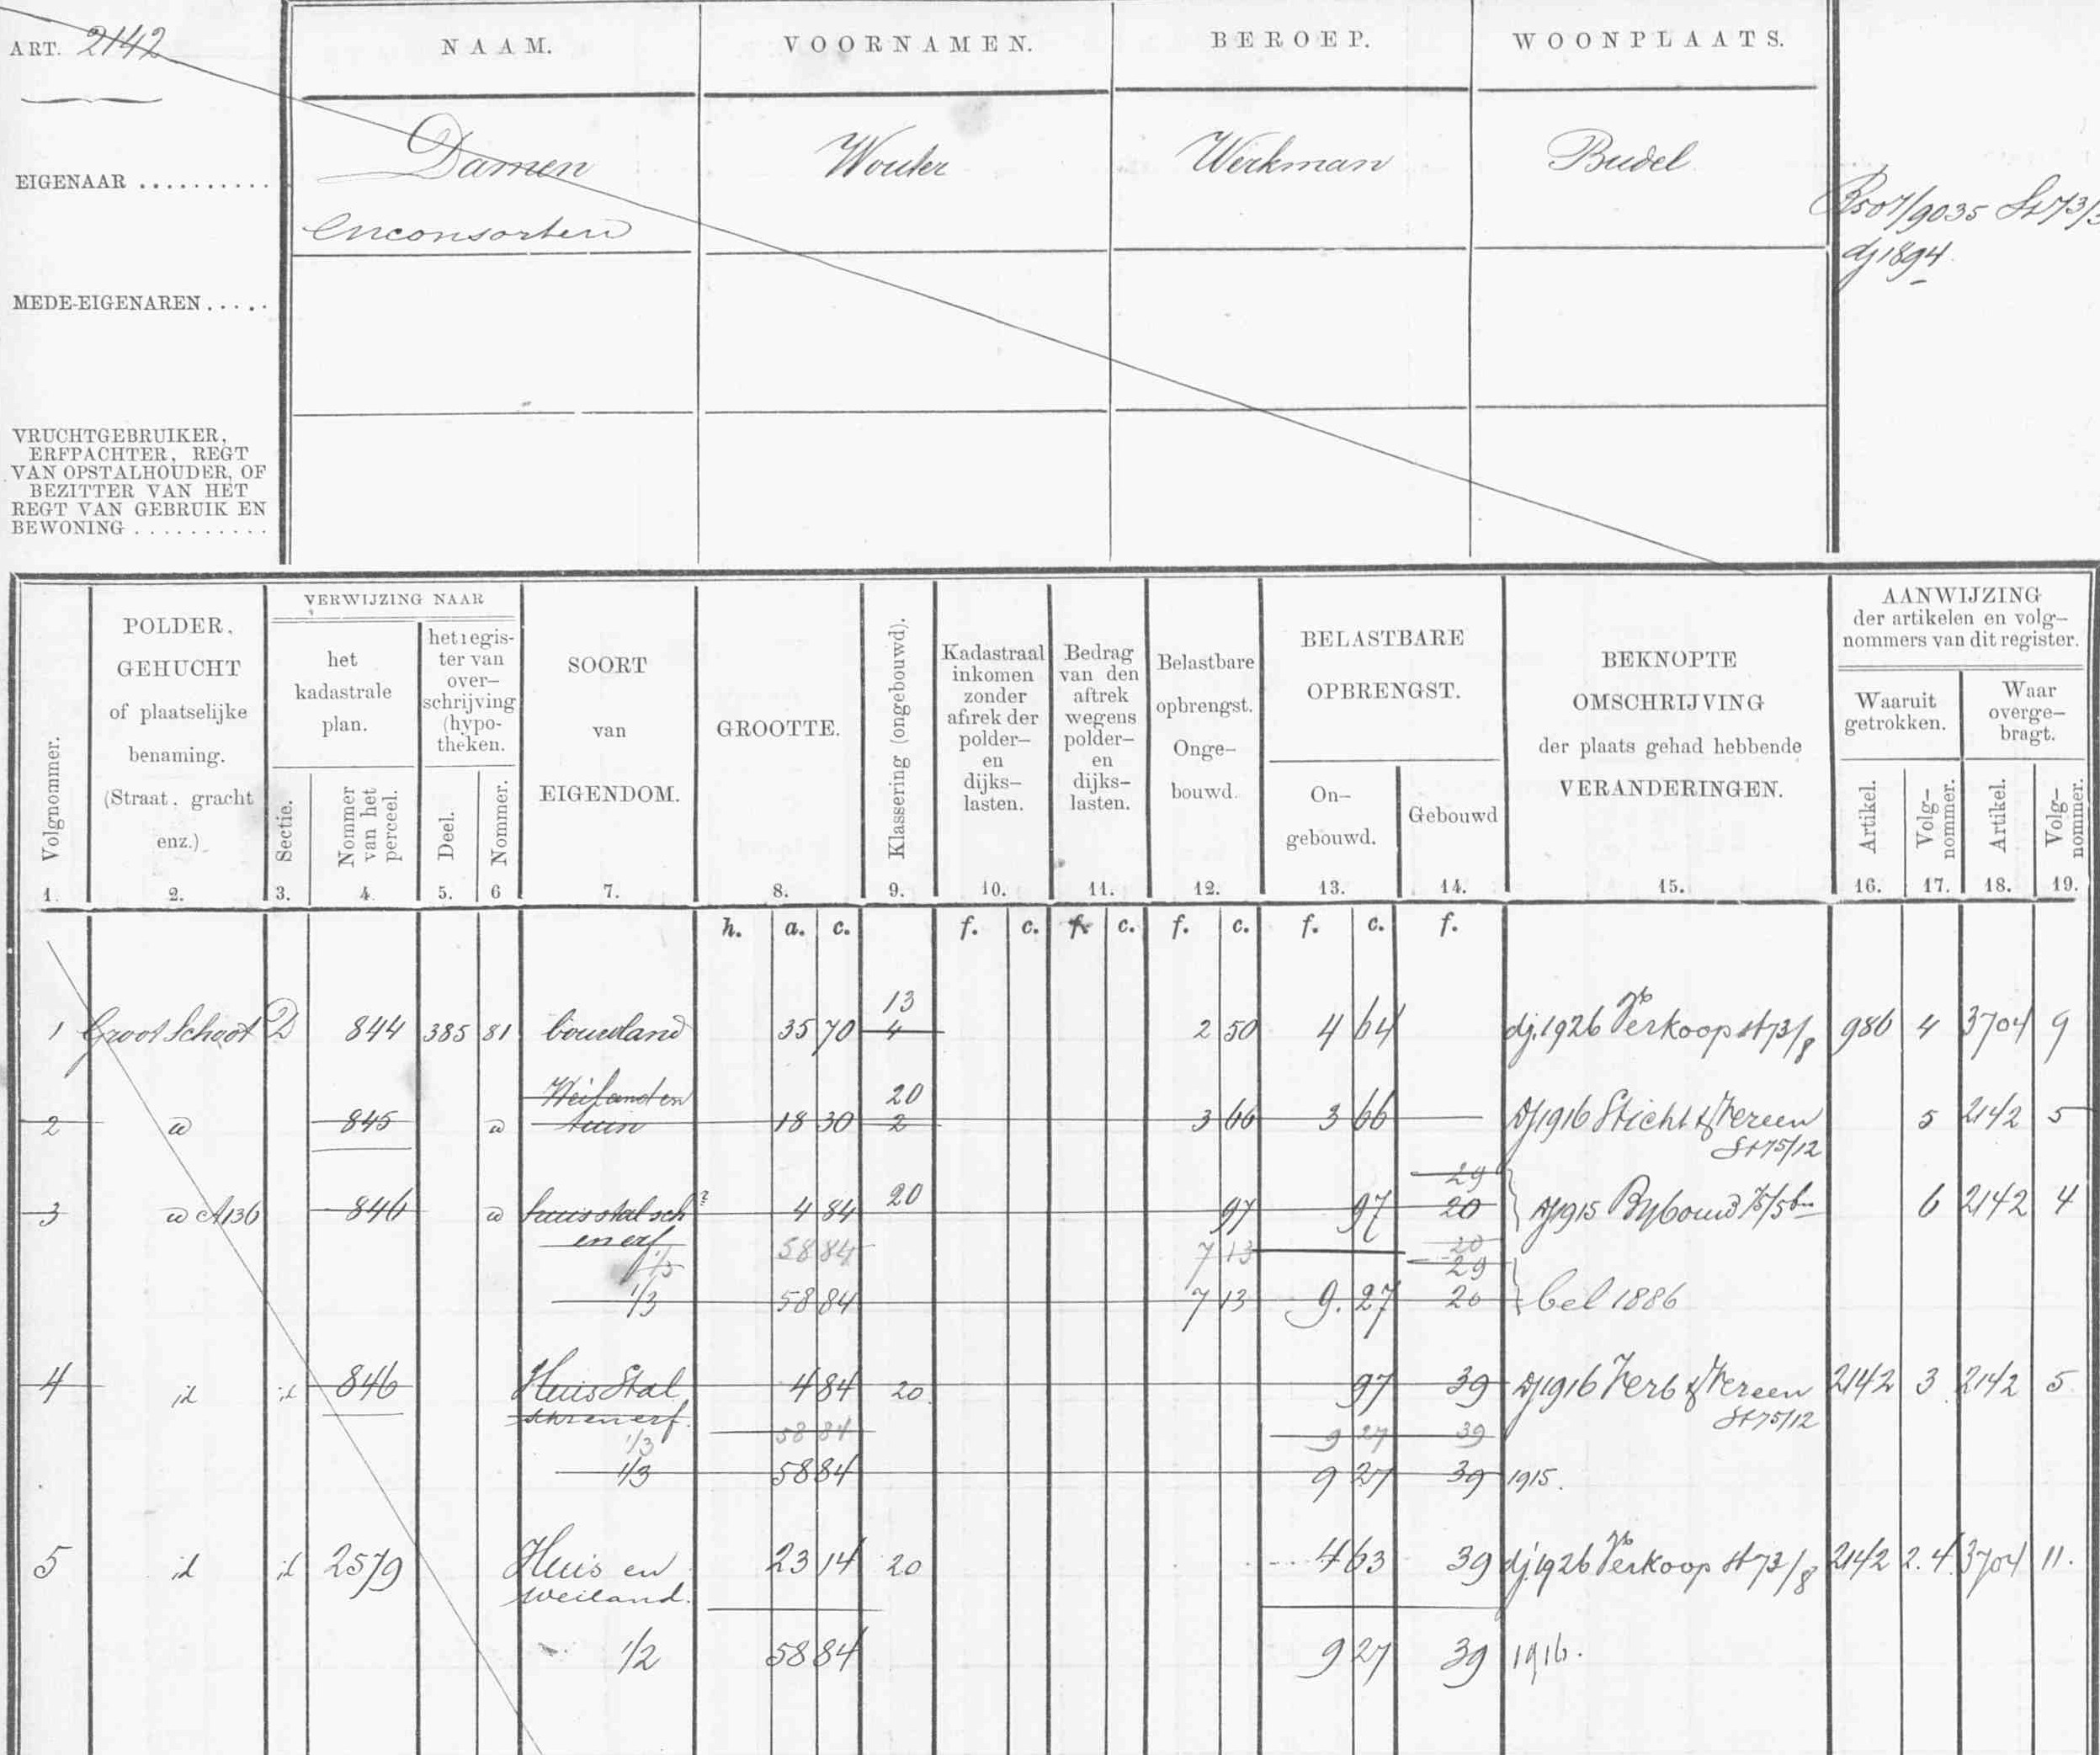 ART. 2142
NAAM. VOORNAMEN. BEROEP. WOONPLAATS.
EIGENAAR .......... Damen Wouter Werkman Budel
enconsorten
R501/9035 St 73/3
dj 1894
MEDE-EIGENAREN .....
VRUCHTGEBRUIKER,
ERFPACHTER, REGT
VAN OPSTALHOUDER, OF
BEZITTER VAN HET
REGT VAN GEBRUIK EN
BEWONING ..........
Volgnommer.
POLDER,
GEHUCHT
of plaatselijke
benaming.
(Straat, gracht
enz.)
VERWIJZING NAAR
het
kadastrale
plan.
het regis-
ter van
over-
schrijving
(hypo-
theken.
Sectie.
Nommer
van het
perceel.
Deel.
Nommer.
SOORT
van
EIGENDOM.
GROOTTE.
Klassering (ongebouwd).
Kadastraal
inkomen
zonder
aftrek der
polder-
en
dijks-
lasten.
Bedrag
van den
aftrek
wegens
polder-
en
dijks-
lasten.
Belastbare
opbrengst.
Onge-
bouwd.
BELASTBARE
OPBRENGST.
On-
gebouwd.
Gebouwd
BEKNOPTE
OMSCHRIJVING
der plaats gehad hebbende
VERANDERINGEN.
AANWIJZING
der artikelen en volg-
nommers van dit register.
Waaruit
getrokken.
Waar
overge-
bragt.
Artikel.
Volg-
nommer.
Artikel.
Volg-
nommer.
1. 2. 3. 4. 5. 6 7. 8. 9. 10. 11. 12. 13. 14. 15. 16. 17. 18. 19.
h. a. c. f. c. f. c. f. c. f. c. f.
13
1 Groot Schoot D 844 385 81 bouwland 35 70 4 2 50 4 64 dj. 1926 Verkoop st 73/8 986 4 3704 9
Weiland en 20
2 id 845 id tuin 18 30 2 3 66 3 66 Dj 1916 Sticht & Vereen 5 2142 5
St 75/12
29
3 id A136 846 id huis stal sch 4 84 20 97 97 20 Dj 1915 Bijbouw 75/5 6 2142 4
en erf 58 84 7 13 20
1/3 29
1/3 58 84 7 13 9. 27 20 bel 1886
4 id id 846 Huis Stal 4 84 20 97 39 Dj 1916 Verb & Vereen 2142 3 2142 5
schr en erf. St 75/12
1/3 58 84 9 27 39
1/3 58 84 9 27 39 1915.
5 id id 2579 Huis en 23 14 20 4 63 39 dj. 1926 Verkoop st 73/8 2142 2. 4. 3704 11.
weiland.
1/2 58 84 9 27 39 1916.